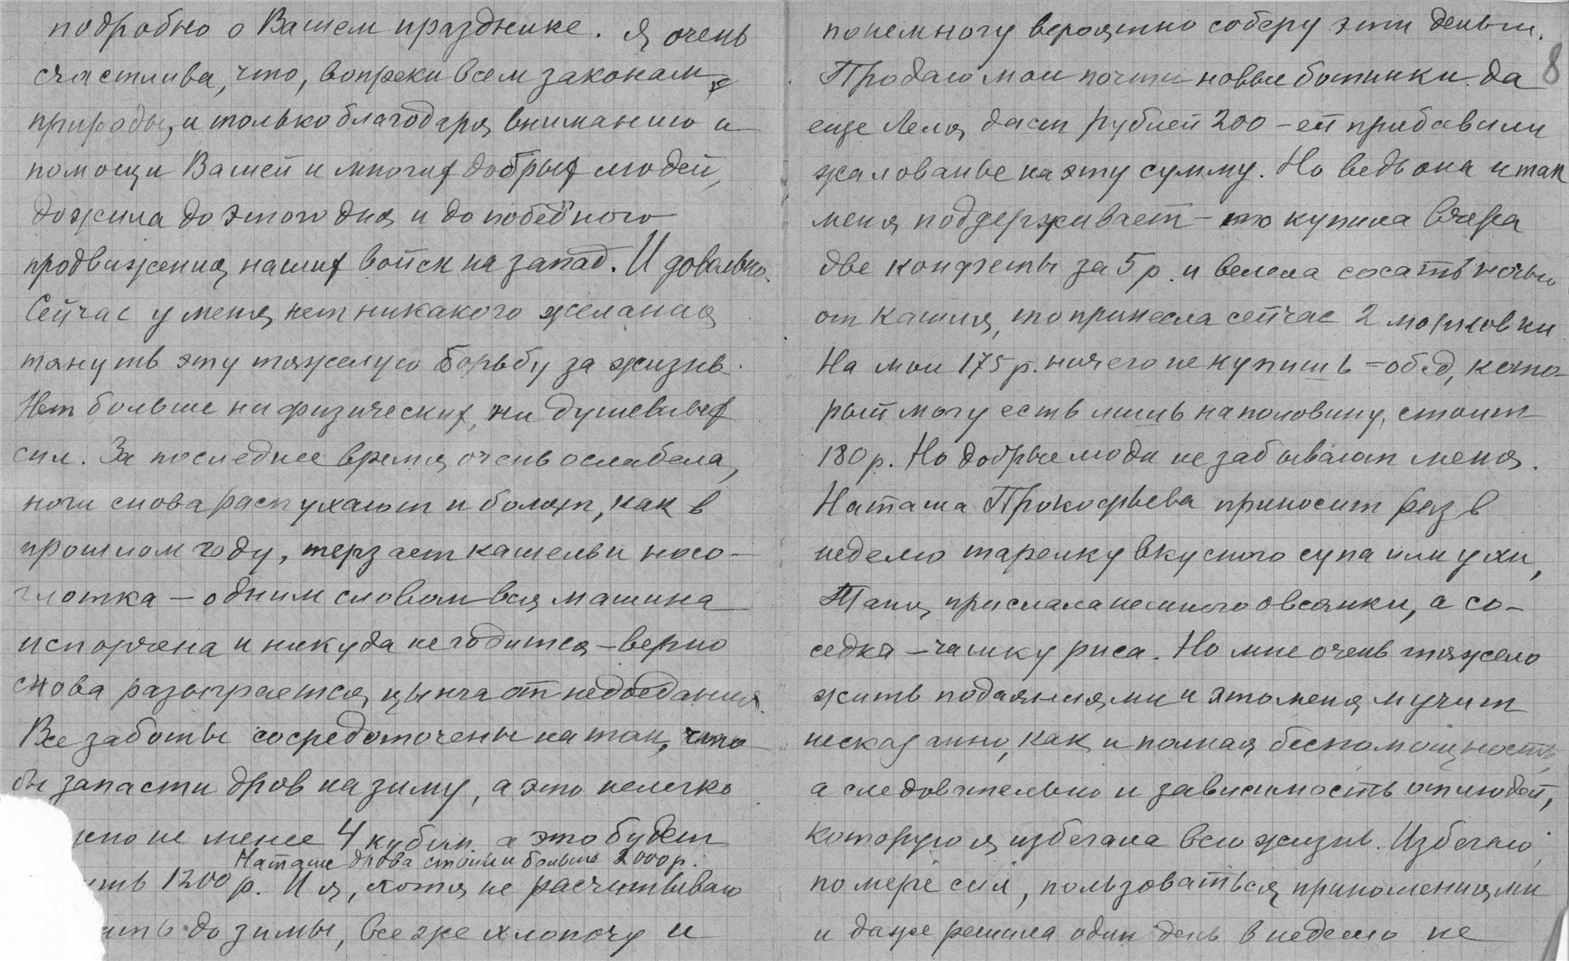 подробно о Вашем празднике. Я очень
счастлива, что, вопреки всем законам
природы, и только благодаря вниманию и
помощи Вашей и многих добрых людей,
дожила до этого дня и до победного
продвижения наших войск на запад. И довольно.
Сейчас у меня нет никакого желания
тянуть эту тяжелую борьбу за жизнь.
Нет больше ни физических, ни душевных
сил. За последнее время очень ослабела,
ноги снова распухают и болят, как в
прошлом году, терзает кашель и носо-
глотка – одним словом вся машина
испорчена и никуда не годится – верно
снова разыграется цынга от недоедания.
Все заботы сосредоточены на том, что
бы запасти дров на зиму, а это нелегко
не менее 4 кубом. а это будет
Наташе дрова стоили больше 2000 р.
1200 р. И я, хотя не расчитываю
до зимы, все же хлопочу и
понемногу вероятно соберу эти деньги.
8
Продаю мои почти новые ботинки да
еще Леля даст рублей 200 – ей прибавили
жалованье на эту сумму. Но ведь она и так
меня поддерживает – то купила вчера
две конфеты за 5 р. и велела сосать ночью
от кашля, то принесла сейчас 2 морковки
На мои 175 р. ничего не купишь – обед, кото-
рый могу есть лишь наполовину, стоит
180 р. Но добрые люди не забывают меня.
Наташа Прокофьева приносит раз в
неделю тарелку вкусного супа или ухи,
Таня прислала немного овсянки, а со-
седка – чашку риса. Но мне очень тяжело
жить подаяниями и это меня мучит
несказанно, как и полная беспомощность,
а следовательно и зависимость от людей,
которую я избегала всю жизнь. Избегаю,
по мере сил, пользоваться приношениями
и даже решила один день в неделю не